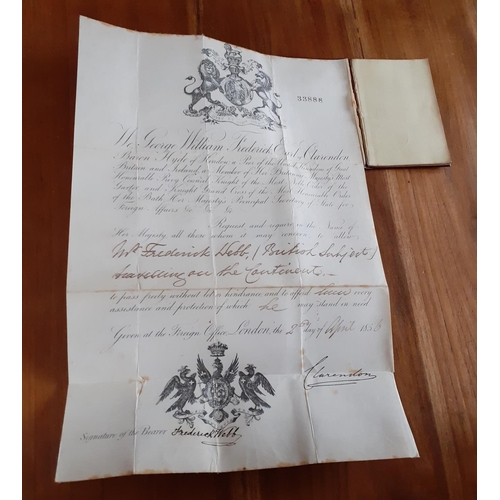 33888
We George William Frederick Earl of Clarendon
Baron Hyde of Hindon, a Peer of the United Kingdom of Great
Britain and Ireland, a Member of Her Britannic Majesty's Most
Honourable Privy Council, Knight of the Most Noble Order of the
Garter and Knight Grand Cross of the Most Honorable Order
of the Bath, Her Majesty's Principal Secretary of State for
Foreign Affairs &c &c &c
Request and require in the Name of
Her Majesty all those whom it may concern to
Mr Frederick Webb, (British Subject)
travelling on the Continent
to pass freely without let or hindrance and to afford him every
assistance and protection of which he may stand in need
Given at the Foreign Office, London, the 2nd day of April 185
Clarendon
Signature of the Bearer Frederick Webb